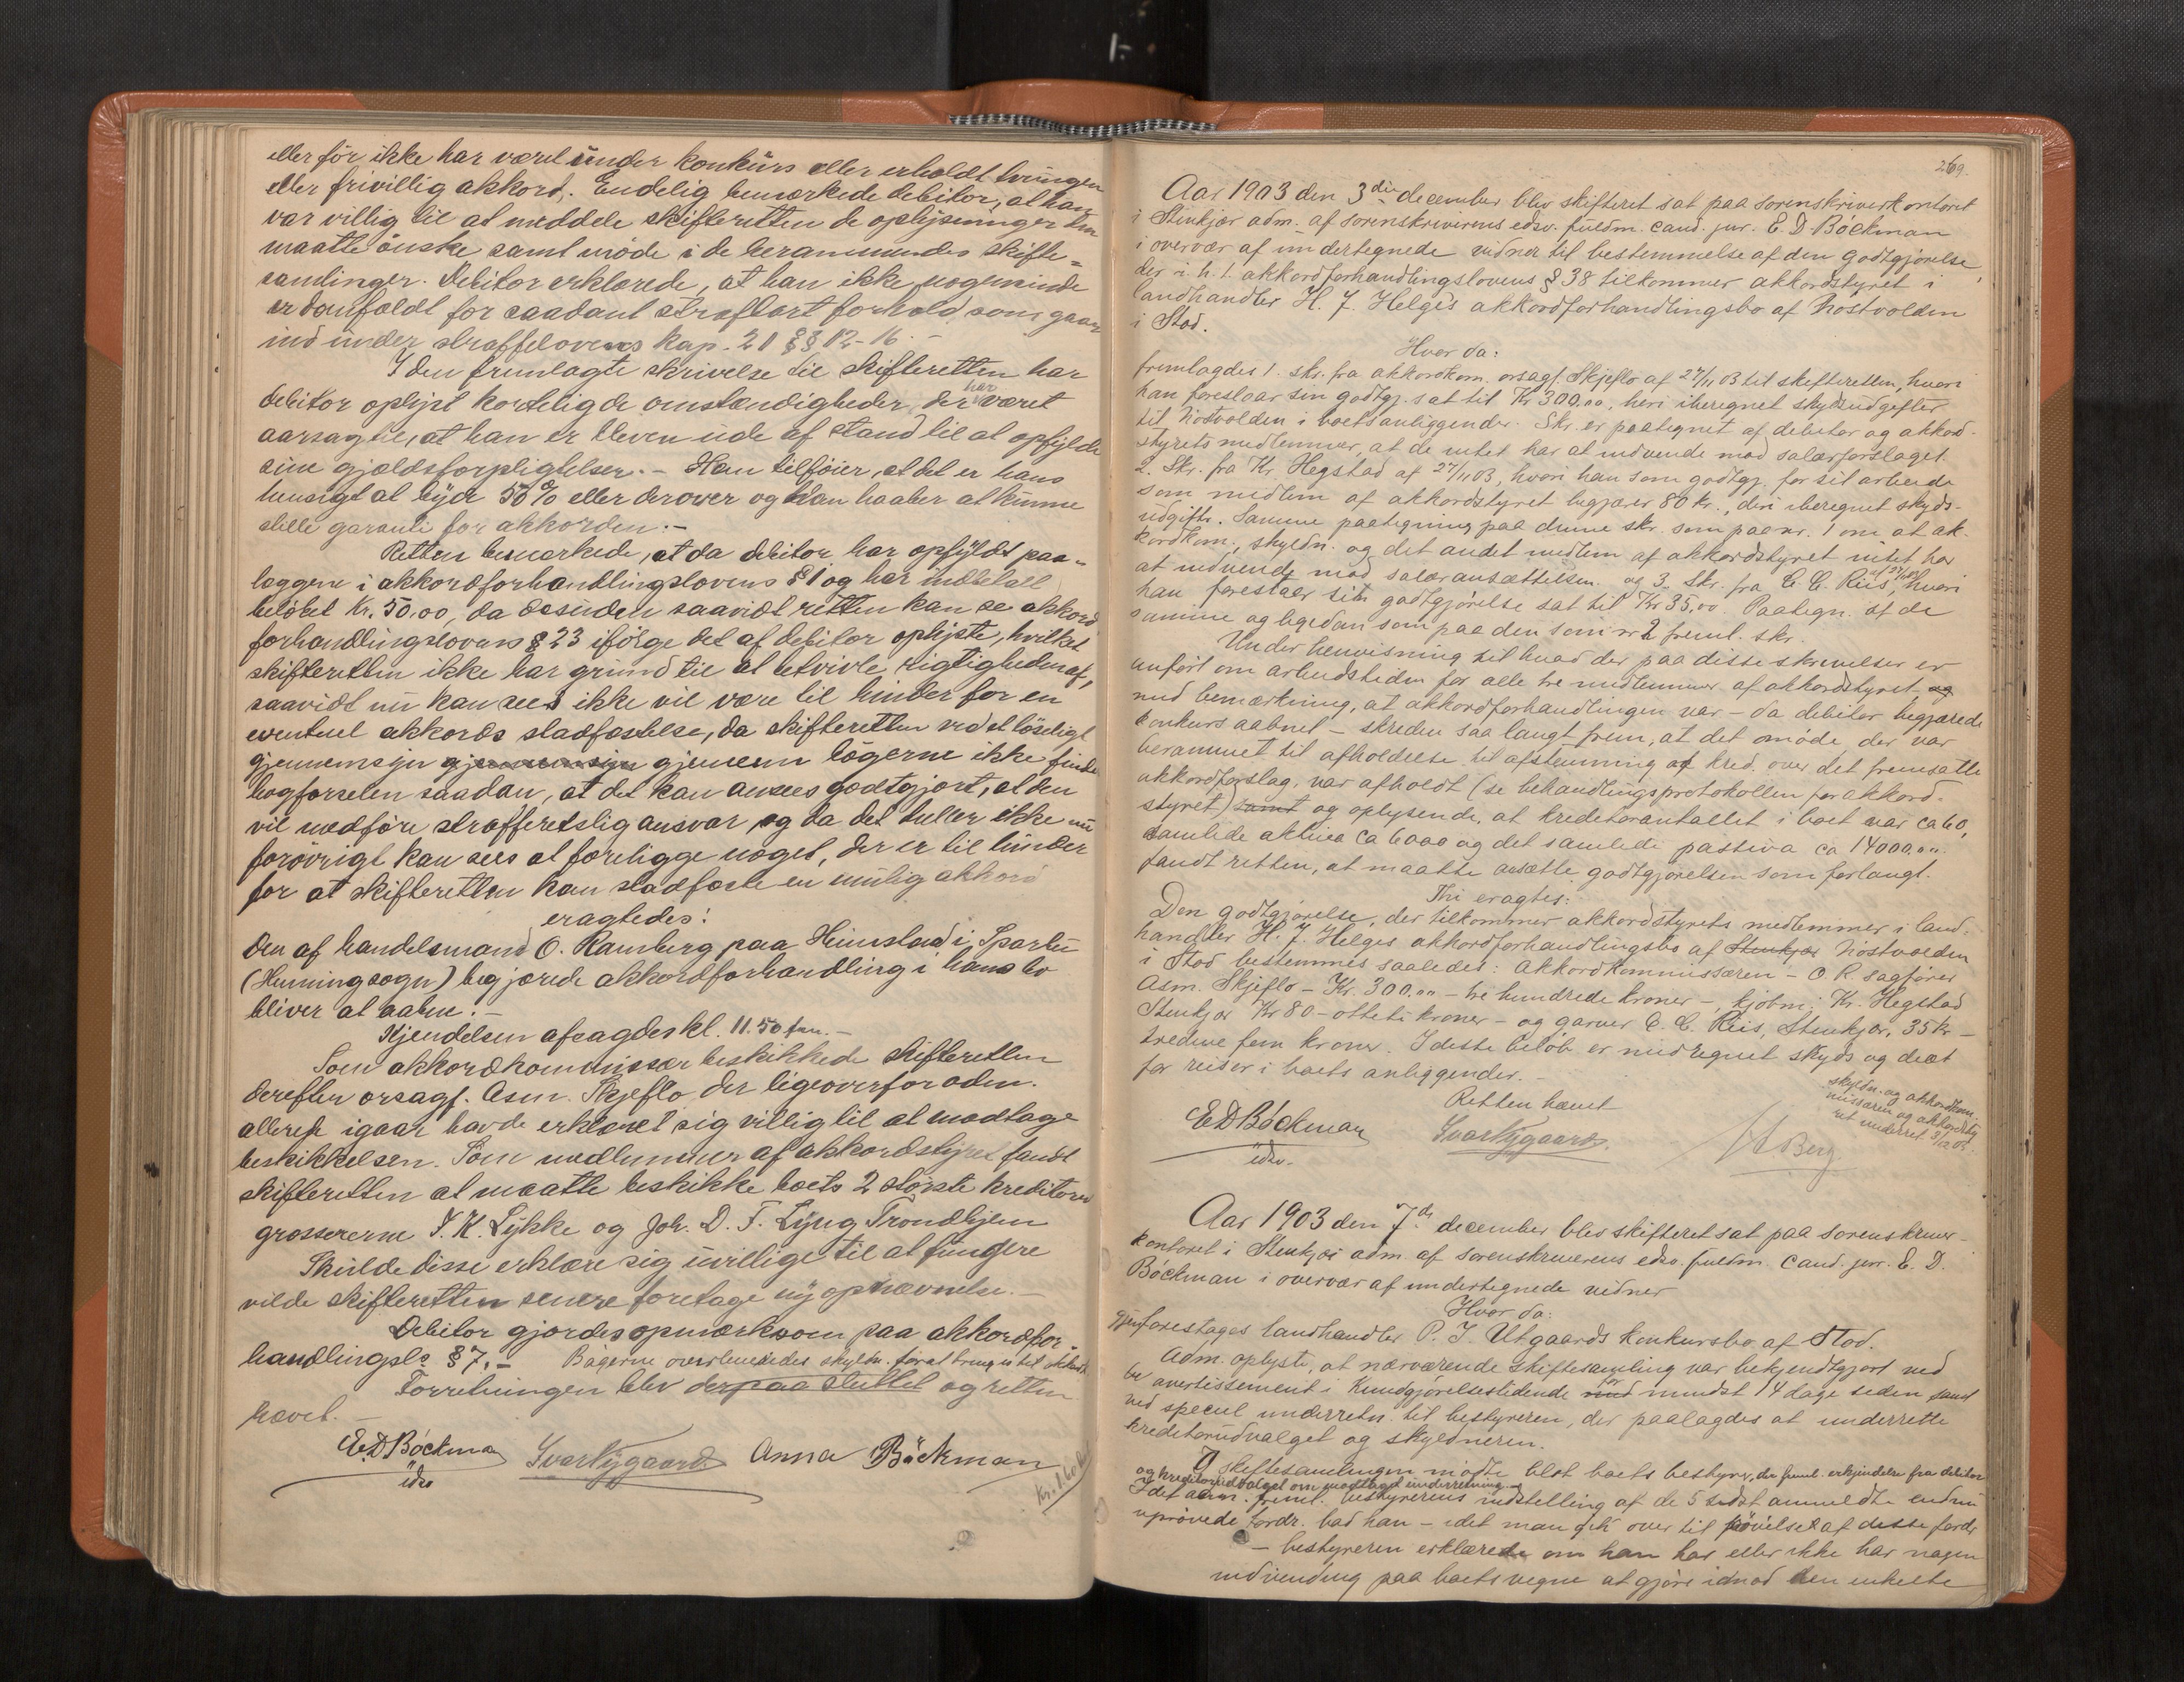 eller før ikke har været under konkurs eller erholdt tvungen
eller frivillig akkord. Endelig bemærkede debitor, at han
var villig til at meddele skifteretten de oplysninger den
maatte ønske samt møde i de berammendes skifte=
samlinger. Debitor erklærede, at han ikke nogensinde
er domfældt for saadant strafbart forhold som gaar
ind under straffelovens Kap. 21 §§ 12-16.-
I den fremlagte skrivelse til skifteretten har
debitor oplyst kortelig de omstændigheder, der har været
aarsag til, at han er bleven ude af stand til at opfylde
sine gjældsforpligtelser.- Han tilføier, at det er hans
hensigt at byde 50% eller derover og han haaber at kunne
stille garanti for akkorden.-
Retten bemærkede, at da debitor har opfyldt paa-
læggene i akkordforhandlingslovens § 1 og har indbetalt
beløbet Kr. 50.00, da desuden saavidt retten kan se akkord
forhandlingslovens § 23 ifølge det af debitor oplyste, hvilket
skifteretten ikke har grund til at betvivle rigtigheden af,
saavidt nu kan sees ikke vil være til hinder for en
eventuel akkords stadfæstelse, da skifteretten ved et løseligt
gjennemsyn gjennemsyn gjennem bøgerne ikke finder
bogførselen saadan, at det kan ansees godtgjort, at den
vil medføre strafferetslig ansvar og da det heller ikke nu
forøvrigt kan sees at foreligge noget, der er til hinder
for at skifteretten kan stadfæste en mulig akkord
eragtedes:
Den af handelsmand O. Ramberg paa Heimstad i Sparbu
(Henning sogn) begjærede akkordforhandling i hans bo
bliver at aabne.-
Kjendelsen afsagdes kl. 11.50 fm.-
Som akkordkommissær beskikkede skifteretten
derefter orsagf. Asm. Skjeflo der ligeoverfor aden.
allerede igaar havde erklæret sig villig til at modtage
beskikkelsen. Som medlemmer af akkordstyret fandt
skifteretten at maatte beskikke boets 2 største kreditorer
grossererne I. K. Lykke og Joh. D. F. Lyng Trondhjem
Skulde disse erklære sig uvillige til at fungere
vilde skifteretten senere foretage ny opnævnelse.-
Debitor gjordes opmærksom paa akkordfor-
handlingsls § 7.- Bøgerne overleveredes skyldn. for at bringes til akkordk
Forretningen blev derpaa sluttet og retten
hævet.-
E.D Böckman Ivar Nygaard Anna Böckman
edsv

269.
Aar 1903 den 3die december blev skifteret sat paa sorenskriverkontoret
i Stenkjær adm. af sorenskriverens edsv. fuldm. cand. jur. E. D Böckman
i overvær af undertegnede vidner til bestemmelse af den godtgjørelse,
der i h. t. akkordforhandlingslovens § 38 tilkommer akkordstyret i
landhandler H. J. Helges akkordforhandlingsbo af Nostvolden
i Stod.
Hvor da:
fremlagdes 1. skr. fra akkordkom. orsagf. Skjeflo af 27/11 03 til skifteretten, hvori
han foreslaar sin godtgj. sat til Kr 300,00, heri iberegnet skydsudgifter
til Nostvolden i boets anliggender. Skr. er paategnet af debitor og akkord-
styrets medlemmer, at de intet har at indvende mod salærforslaget.
2. Skr. fra Kr. Hegstad af 27/11 03, hvori han som godtgj. for sit arbeide
som medlem af akkordstyret begjærer 80 kr., deri iberegnet skyds-
udgifter. Samme paategning paa denne skr. som paa nr. 1 om at ak-
kordkom., skyldn. og det andet medlem af akkordstyret intet har
at indvende mod salæransættelsen. og 3. skr. fra C. C. Riis, af 27/11 03 hvori
han foreslaar sin godtgjørelse sat til Kr 35,00. Paategn. af de
samme og ligedan som paa den som nr 2 freml. skr.
Under henvisning til hvad der paa disse skrivelser er
anført om arbeidstiden for alle tre medlemmer af akkordstyret, og
med bemærkning, at akkordforhandlingen var - da debitor begjærede
konkurs aabnet - skreden saa langt frem, at det møde, der var
berammet til afholdelse til afstemning af kred. over det fremsatte
akkordforslag, var afholdt (se behandlingsprotokollen for akkord-
styret) samt og oplysende, at kreditorantallet i boet var ca 60,
samlede aktiva ca 6000 og det samlede passiva ca 14000,00.
fandt retten, at maatte ansætte godtgjørelsen som forlangt.
Thi eragtes:
Den godtgjørelse, der tilkommer akkordstyrets medlemmer i land-
handler H. J. Helges akkordforhandlingsbo af Stenkjær Nostvolden
i Stod bestemmes saaledes: akkordkommissæren - O. R. sagfører
Asm. Skjeflo - Kr. 300.00 - tre hundrede kroner -, kjøbm. Kr. Hegstad
Stenkjær Kr 80 - otteti kroner - og garver C. C. Riis, Stenkjær, 35 kr -
tredive fem kroner. I dette beløb er medregnet skyds og diæt
for reiser i boets anliggender.-
Retten hævet
skyldn. og akkordkom-
missæren og akkordsty
ret underret. 3/12 03.
E D Böckman Ivar Nygaard Berg.
edsv.
Aar 1903 den 7de december blev skifteret sat paa sorenskriver-
kontoret i Stenkjær adm. af sorenskriverens edsv. fuldm. cand. jur. E. D.
Böckman i overvær af undertegnede vidner
Hvor da:
gjenforetages landhandler P. I. Utgaards konkursbo af Stod.
Adm. oplyste, at nærværende skiftesamling var bekjendtgjort ved
avertissement i Kundgjørelsestidende med for mindst 14 dage siden samt
ved speciel underretn. til bestyreren, der paalagdes at underrette
kreditorudvalget og skyldneren.
I skiftesamlingen mødte blot boets bestyrer, der freml. erkjendelse fra debitor
og kreditorudvalget om modtaget underretning.
Idet adm. freml. bestyrerens indstilling af de 5 sidst anmeldte endnu
uprøvede fordr. bad han - idet man gik over til prøvelse af disse fordr
- bestyreren erklære om han har eller ikke har nogen
indvending paa boets vegne at gjøre imod den enkelte